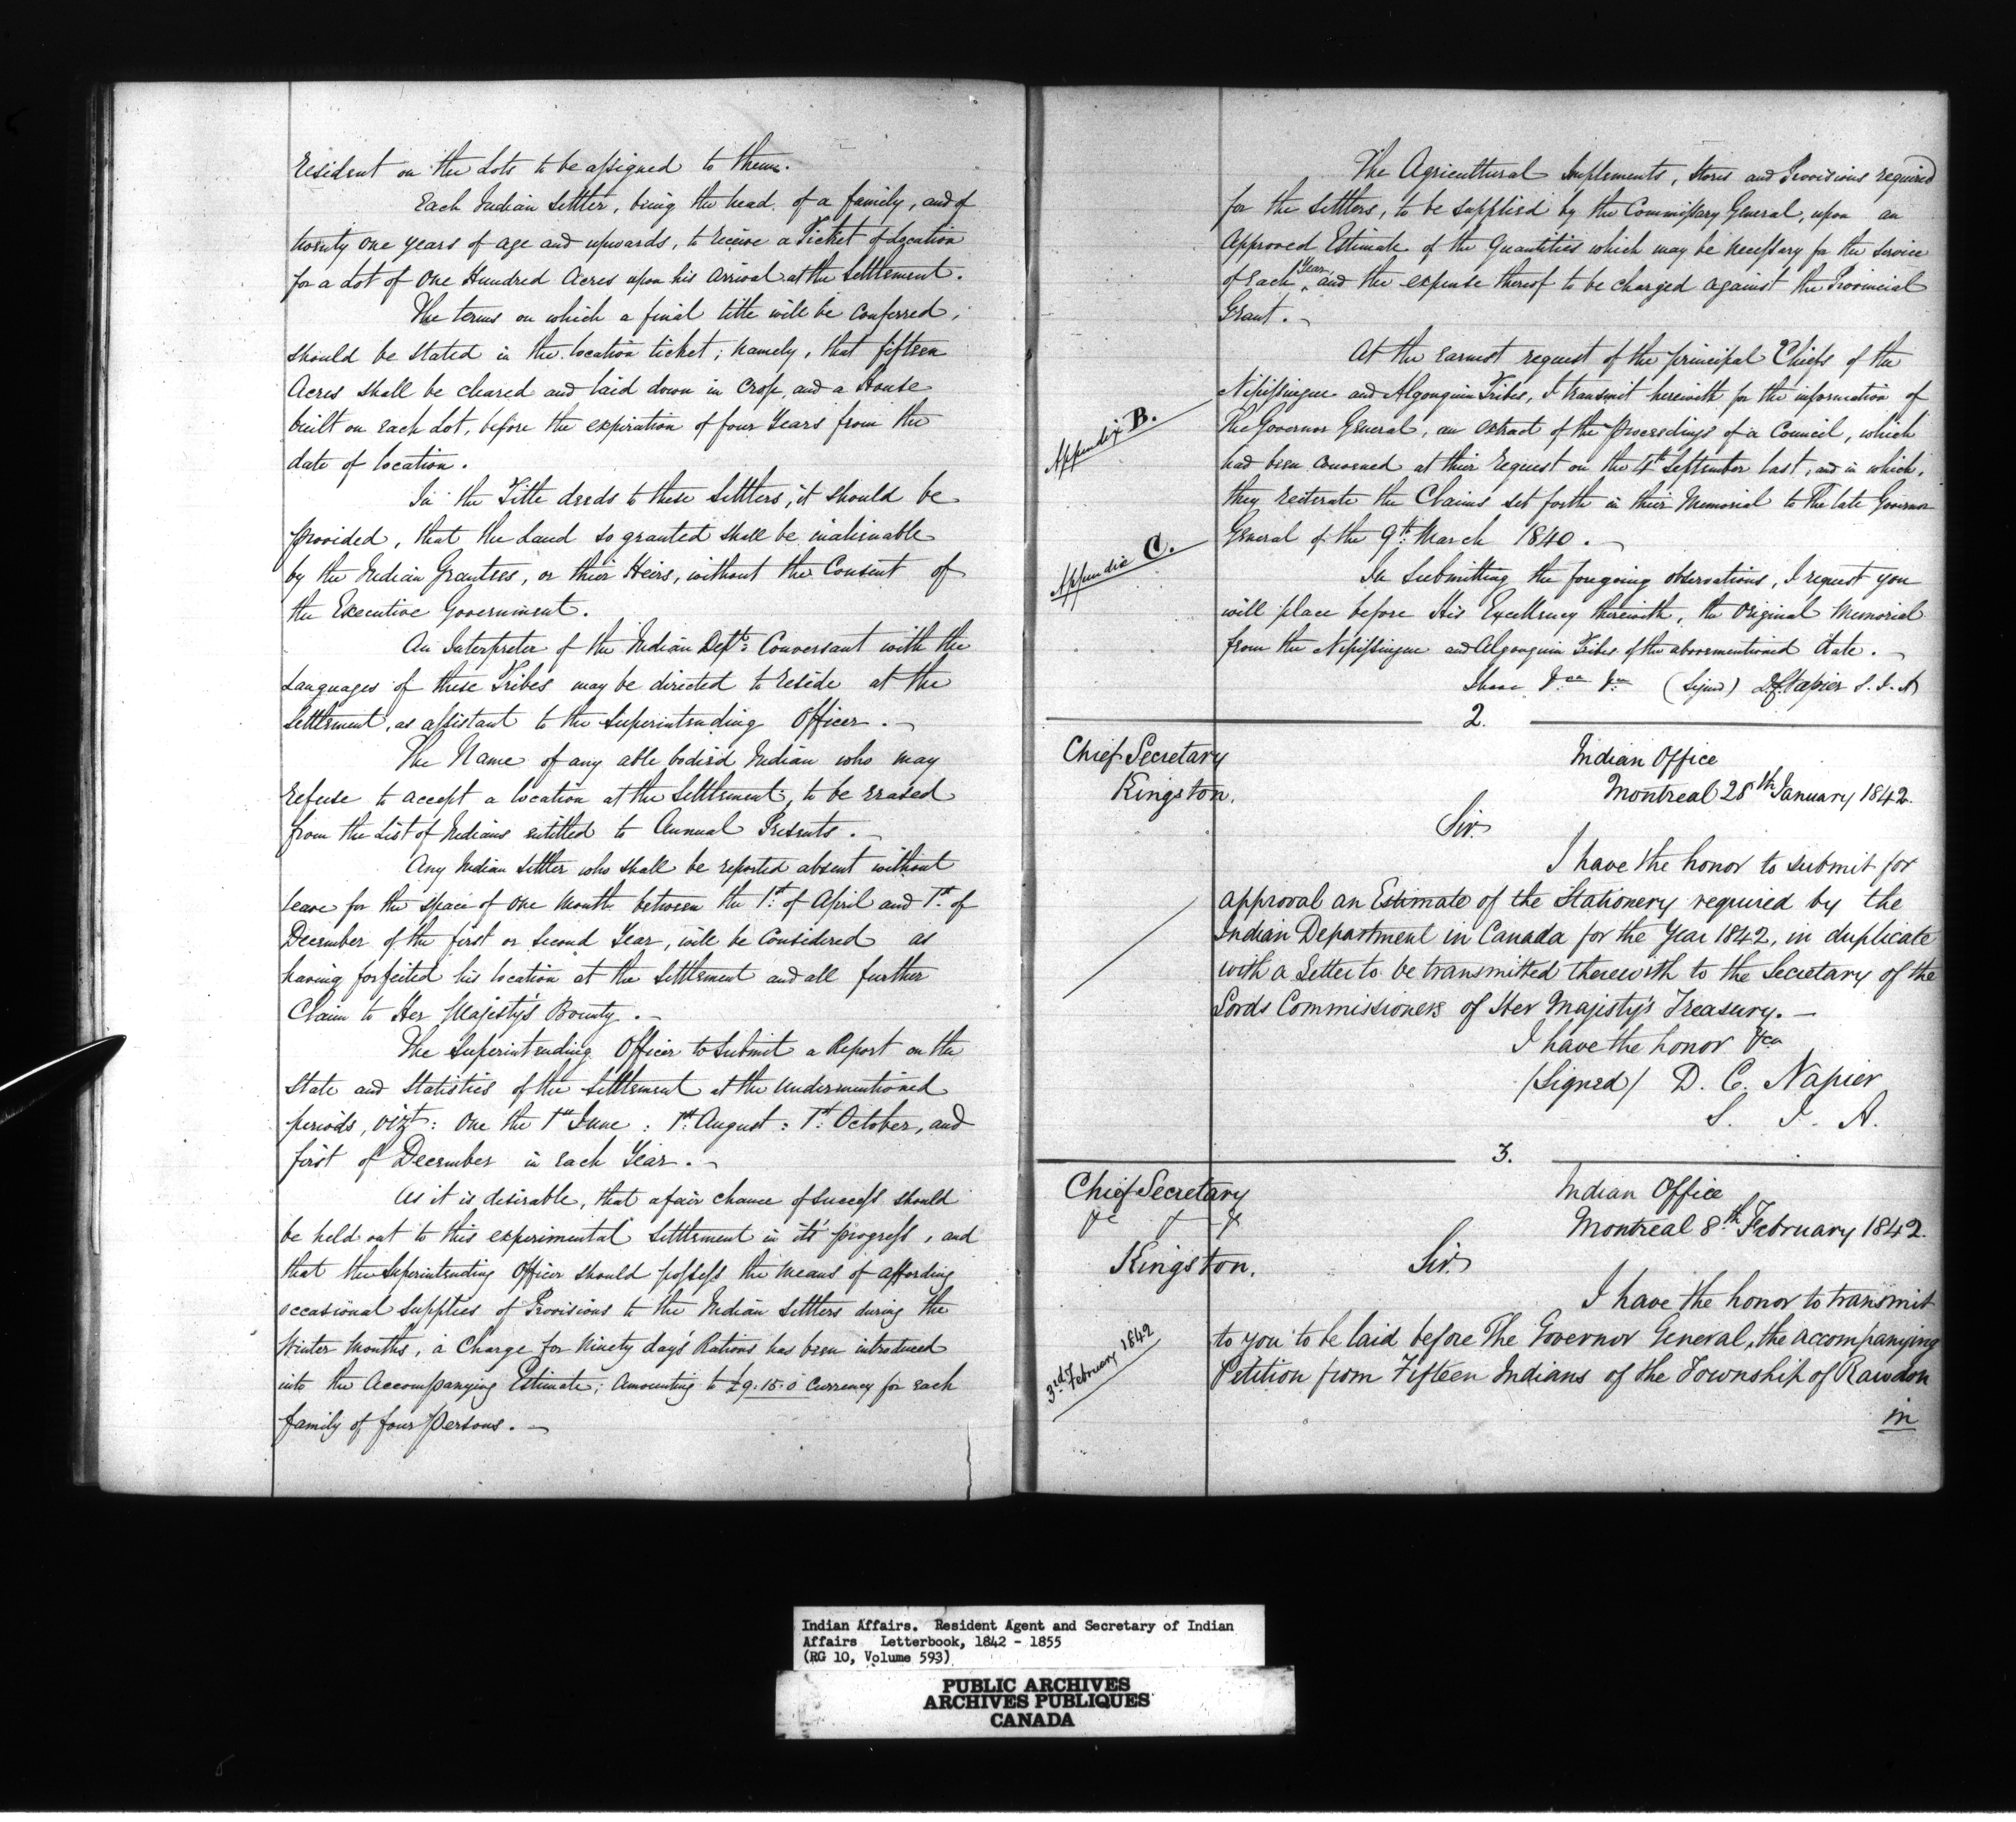 resident on the Lots to be assigned to them.
Each Indian Settler, being the head of a family, and of
twenty one years of age and upwards, to receive a Ticket of Location
for a Lot of One Hundred Acres upon his arrival at the Settlement.
The terms on which a final title will be Conferred,
should be stated in the location ticket; namely, that fifteen
Acres shall be cleared and laid down in Crop, and a House
built on each Lot, before the expiration of four Years from the
date of location.
In the Title deeds to these Settlers, it should be
provided, that the Land so granted shall be inalienable
by the Indian Grantees, or their Heirs, without the Consent of
the Executive Government.
An Interpreter of the Indian Dept: Conversant with the
Languages of these Tribes may be directed to reside at the
Settlement, as assistant to the Superintending Officer. -
The Name of any able bodied Indian who may
refuse to accept a location at the Settlement, to be erased
from the List of Indians entitled to Annual Presents. -
Any Indian Settler who shall be reported absent without
leave for the space of one Month between the 1st of April and 1st of
December of the first or second Year, will be Considered as
having forfeited his location at the Settlement and all further
Claim to Her Majesty's Bounty. -
The Superintending Officer to Submit a Report on the
State and Statistics of the Settlement at the Undermentioned
periods, vizt: One the 1st June : 1st August : 1st October, and
first of December in each Year. -
As it is desirable, that a fair chance of success should
be held out to this experimental Settlement in it's progress, and
that the Superintending Officer should possess the means of affording
occasional Supplies of Provisions to the Indian Settlers during the
Winter Months, a Charge for Ninety day's Rations has been introduced
into the Accompanying Estimate; Amounting to £9.15.0 Currency for each
family of four Persons. -
The Agricultural Implements, Stores and Provisions required
for the Settlers, to be supplied by the Commissary General, upon an
Approved Estimate of the Quantities which may be necessary for the Service
of each Year, and the expense thereof to be charged against the Provincial
Grant. -
At the earnest request of the principal Chiefs of the
Appendix B.
Nipissingue and Algonquin Tribes, I transmit herewith for the information of
The Governor General, an extract of the proceedings of a Council, which
had been convened at their request on the 4th September last, and in which,
they reiterate the Claims set forth in their Memorial to The late Governor
Appendix C.
General of the 9th March 1840. -
In Submitting the foregoing observations, I request you
will place before His Excellency therewith, the Original Memorial
from the Nipissingue and Algonquin Tribes of the abovementioned date. -
I have &ca &ca (Signed) D C Napier S.I.A
2.
Chief Secretary
Kingston.
Indian Office
Montreal 28th January 1842.
Sir.
I have the honor to submit for
approval an Estimate of the Stationery required by the
Indian Department in Canada for the Year 1842, in duplicate
with a Letter to be transmitted therewith to the Secretary of the
Lords Commissioners of Her Majesty's Treasury. -
I have the honor &ca
(Signed) D. C. Napier
S. I. A.
3.
Chief Secretary
&c & &
Kingston.
Indian Office
Montreal 8th February 1842.
Sir.
I have the honor to transmit
3rd February 1842
to you to be laid before The Governor General, the accompanying
Petition from Fifteen Indians of the Township of Rawdon
in
Indian Affairs. Resident Agent and Secretary of Indian
Affairs Letterbook, 1842 - 1855
(RG 10, Volume 593)
PUBLIC ARCHIVES
ARCHIVES PUBLIQUES
CANADA